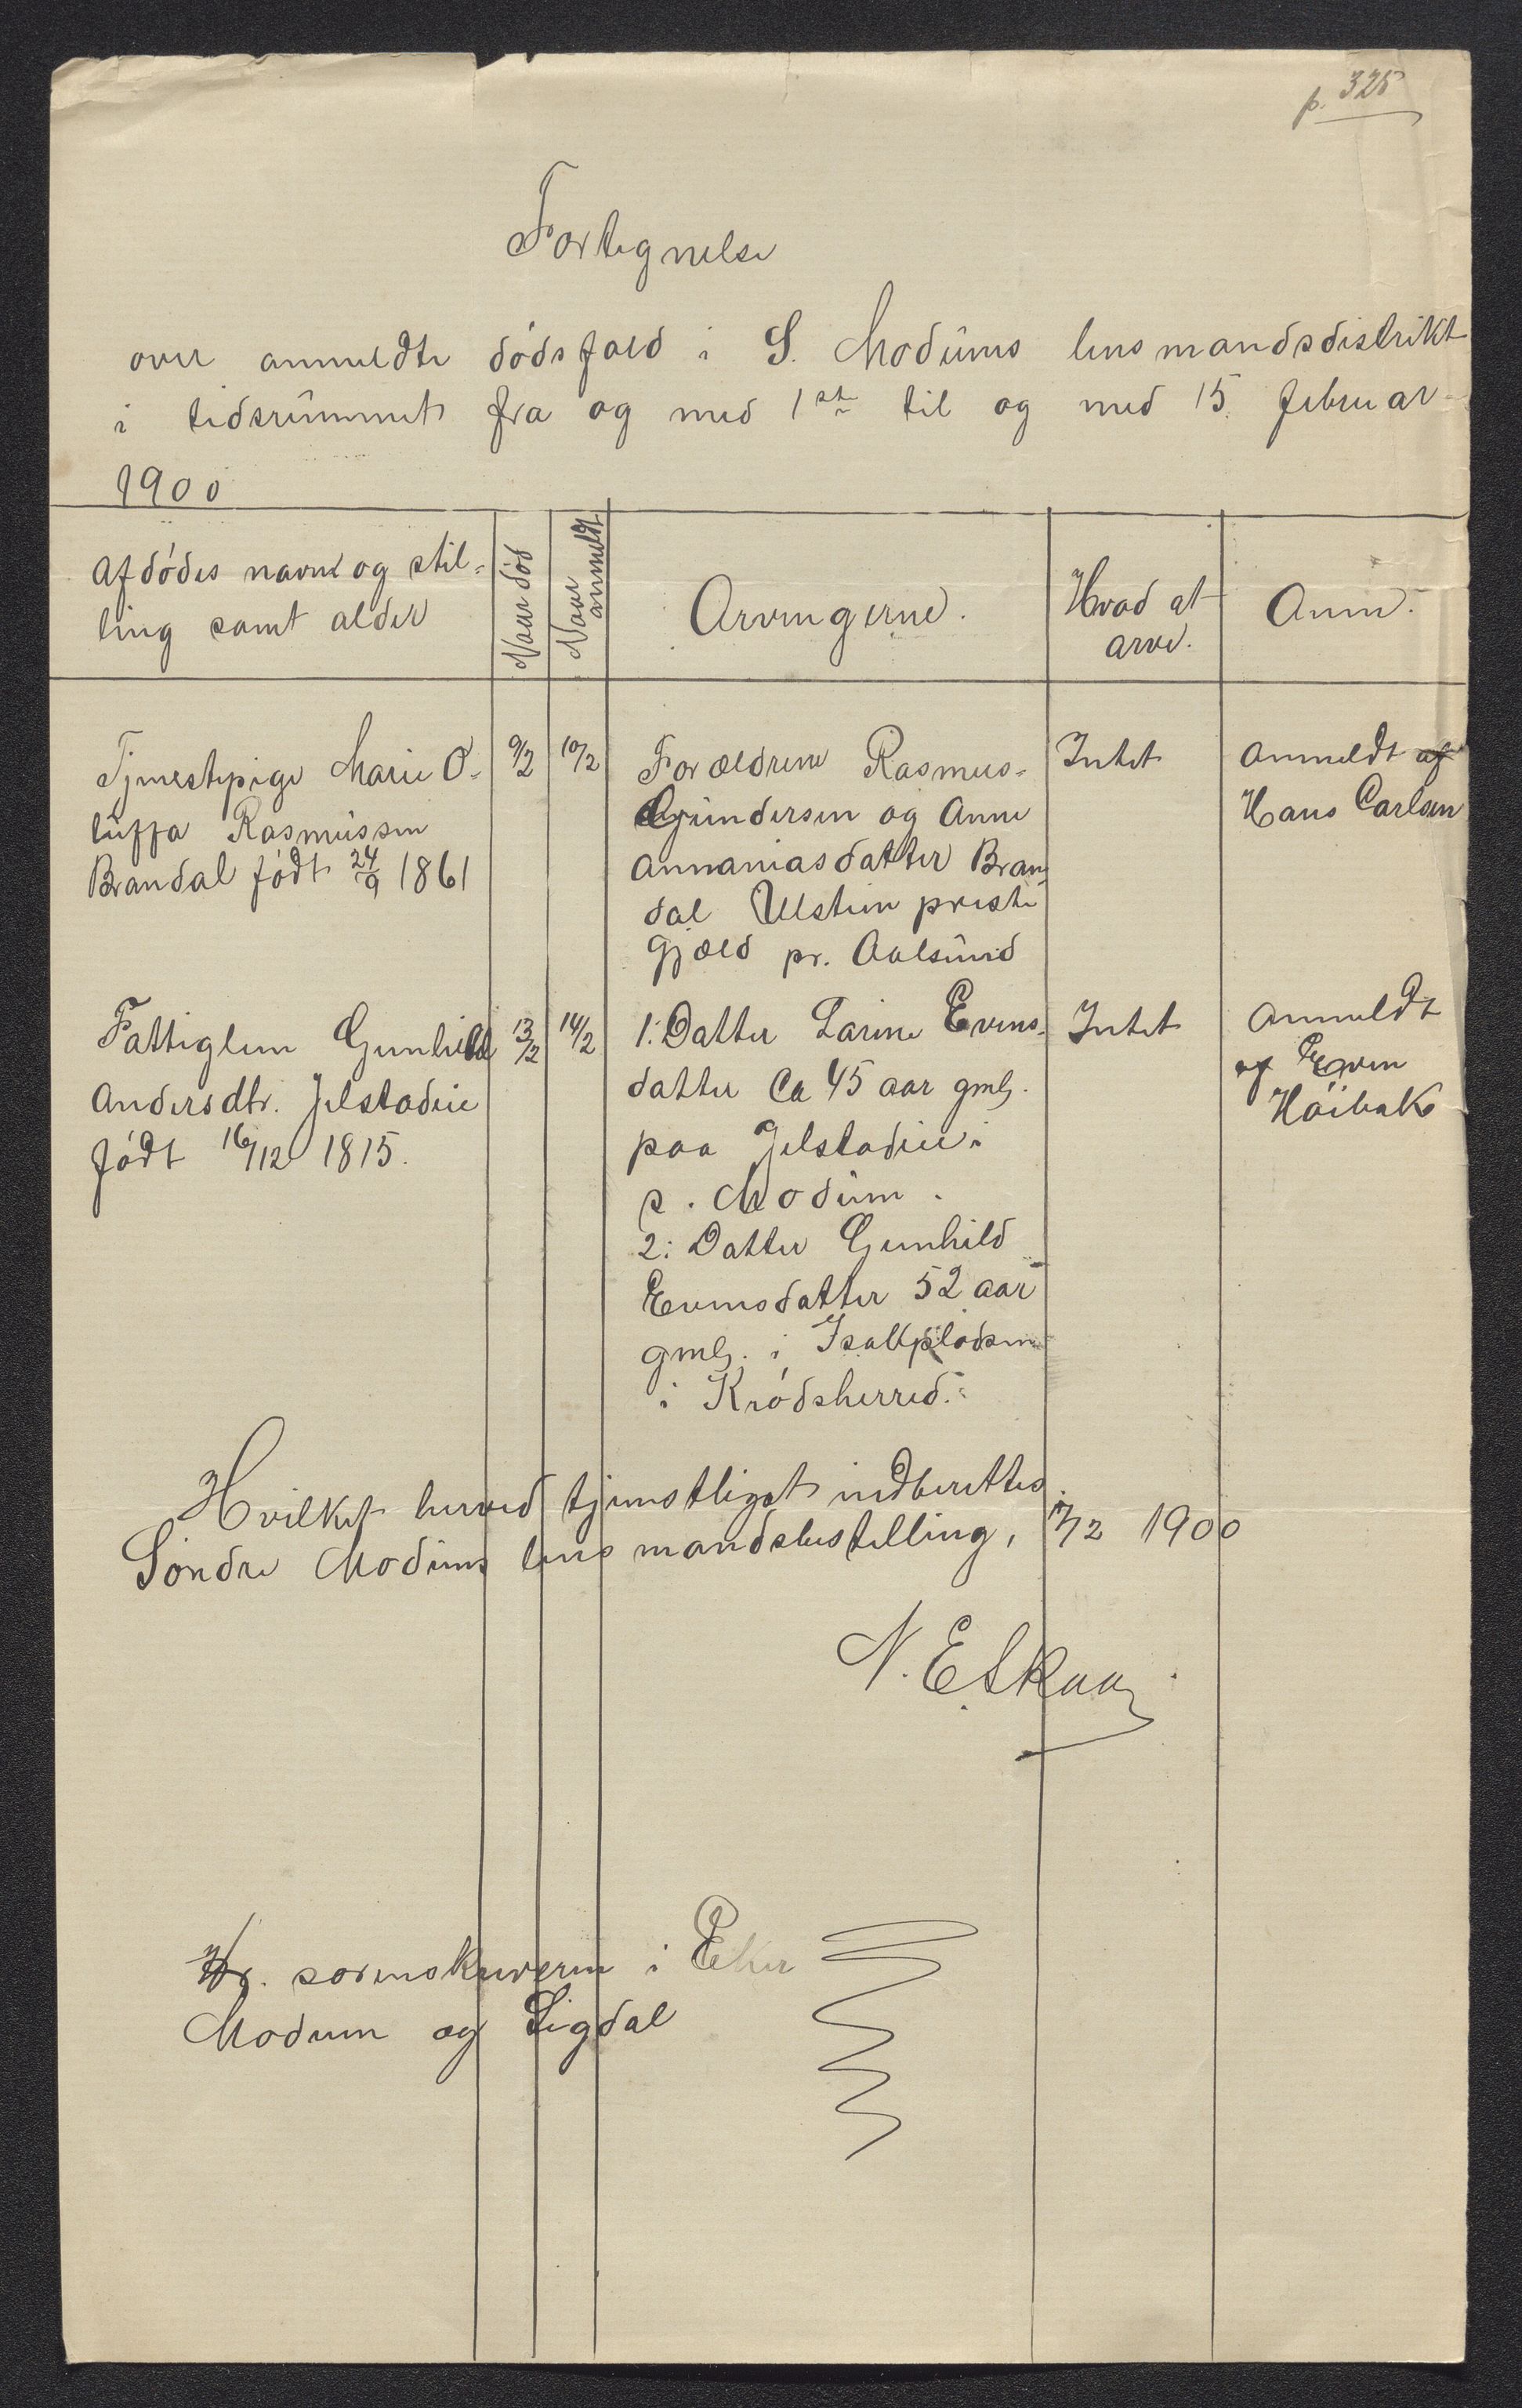 p. 325
Fortegnelse
over anmeldte dödsfald i S. Modums lensmandsdistrikt
i tidsrummet fra og med 1ste til og med 15 februar
1900
Afdödes navn og stil-
ling samt alder
Naar död
Naar anmeldt
Arvingerne.
Hvad at
arve.
Anm.
Tjenestepige Marie O-
luffa Rasmussen
Brandal födt 24/9 1861
9/2
10/2
Forældrene Rasmus
Gundersen og Anne
Annaniasdatter Bran-
dal Ulstein preste
gjæld pr. Aalsund
Intet
Anmeldt af
Hans Carlsen
Fattiglem Gunhild
Andersdtr. Jelstadeie
födt 16/12 1815.
13/2
14/2
1: Datter Larine Evens-
datter Ca 45 aar gml.
paa Jelstadeie i
s. Modum.
2: Datter Gunhild
Evensdatter 52 aar
gml. i
i Krödsherred.
Intet
Anmeldt
af Even
Höibak
Hvilket herved tjenstligst indberettes.
Söndre Modums lensmandsbestilling, /2 1900
N. E Skaa
Hr. sorenskriveren i Eker
Modum og Sigdal